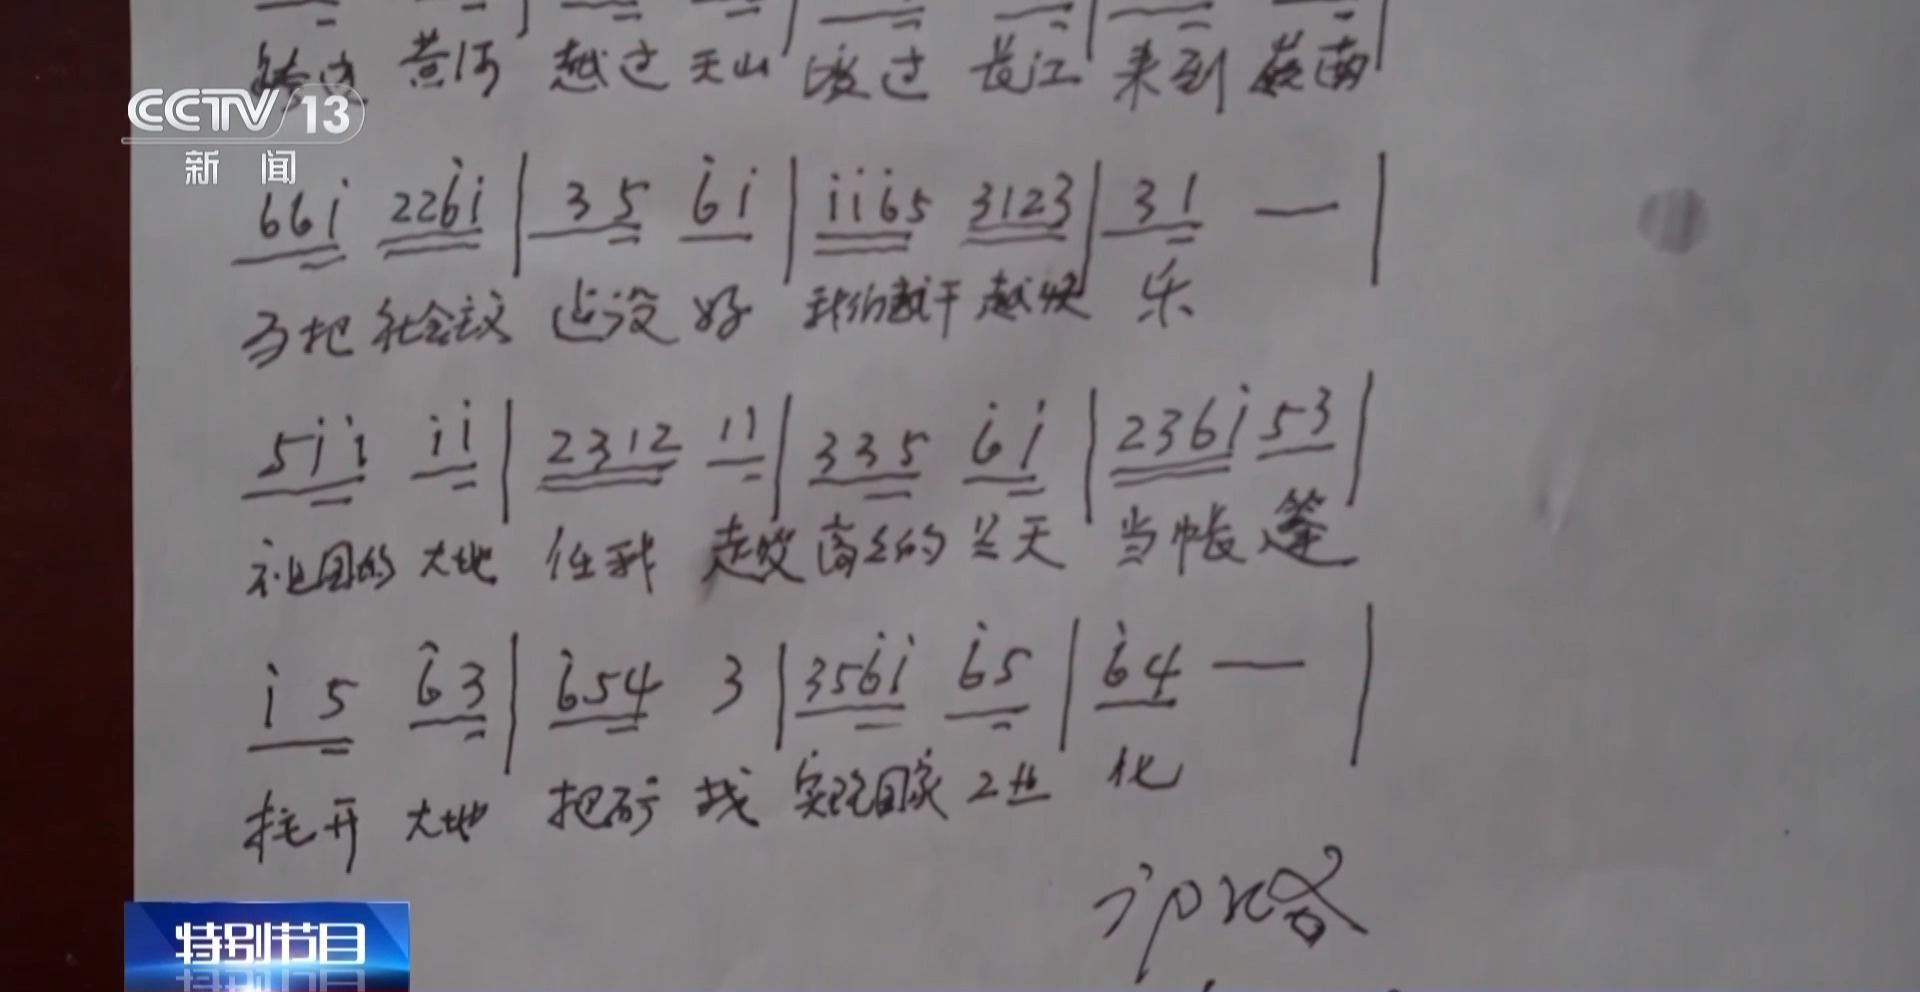 跨过 黄河 越过 天山 渡过 长江 来到 岭南
CCTV 13
新闻
66i 226i | 35 6i | ii65 3123 | 31 — |
为把 社会主义 建设 好 我们越干 越快 乐
5ii ii | 2312 11 | 335 6i | 236i 53 |
祖国的 大地 任我 走 高高的 兰天 当帐 篷
i5 63 | 654 3 | 356i 65 | 64 — |
打开 大地 把矿 找 实现国家 工业 化
特别节目